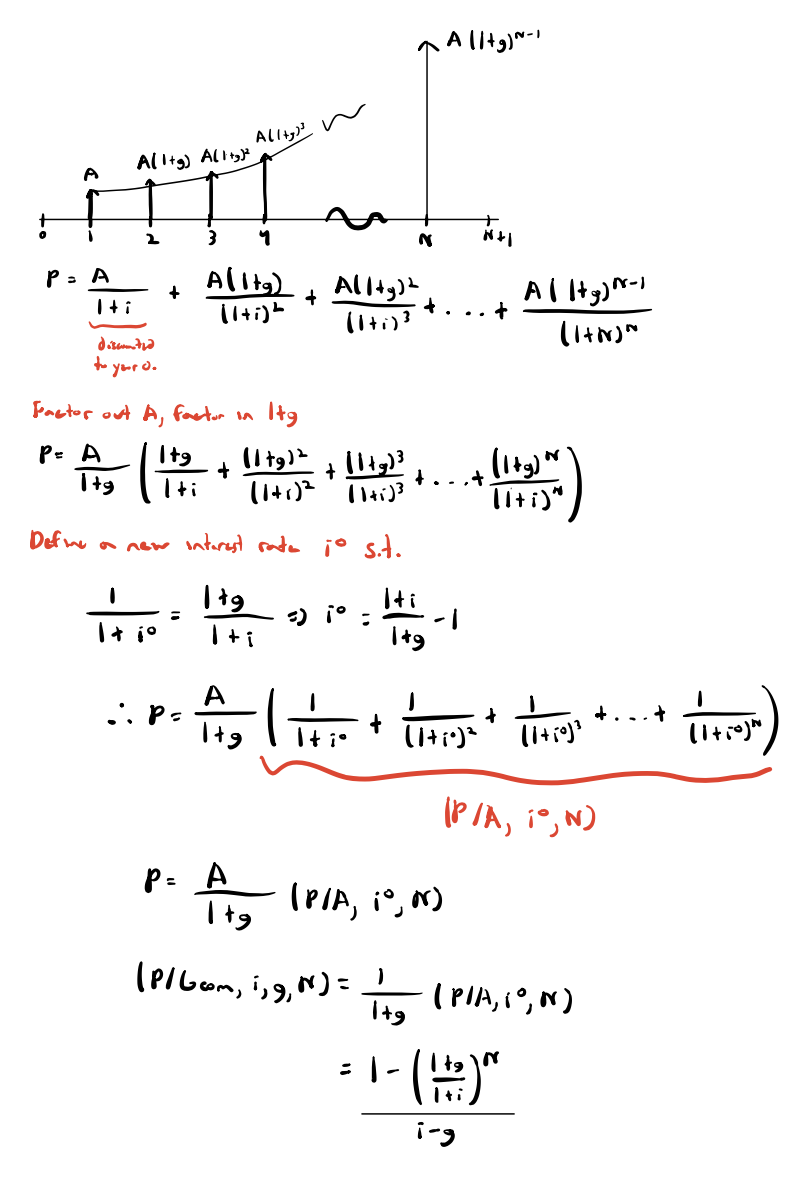 A(1+g)^{N-1}
A A(1+g) A(1+g)^2 A(1+g)^3
0 1 2 3 4 N N+1
P = A/(1+i) + A(1+g)/(1+i)^2 + A(1+g)^2/(1+i)^3 + . . . + A(1+g)^{N-1}/(1+N)^N
discounted
to year 0.
Factor out A, factor in 1+g
P = A/(1+g) ( (1+g)/(1+i) + (1+g)^2/(1+i)^2 + (1+g)^3/(1+i)^3 + . . . + (1+g)^N/(1+i)^N )
Define a new interest rate i° s.t.
1/(1+i°) = (1+g)/(1+i) ⇒ i° = (1+i)/(1+g) - 1
∴ P = A/(1+g) ( 1/(1+i°) + 1/(1+i°)^2 + 1/(1+i°)^3 + . . . + 1/(1+i°)^N )
(P/A, i°, N)
P = A/(1+g) (P/A, i°, N)
(P/Geom, i, g, N) = 1/(1+g) (P/A, i°, N)
= (1 - ((1+g)/(1+i))^N)/(i-g)